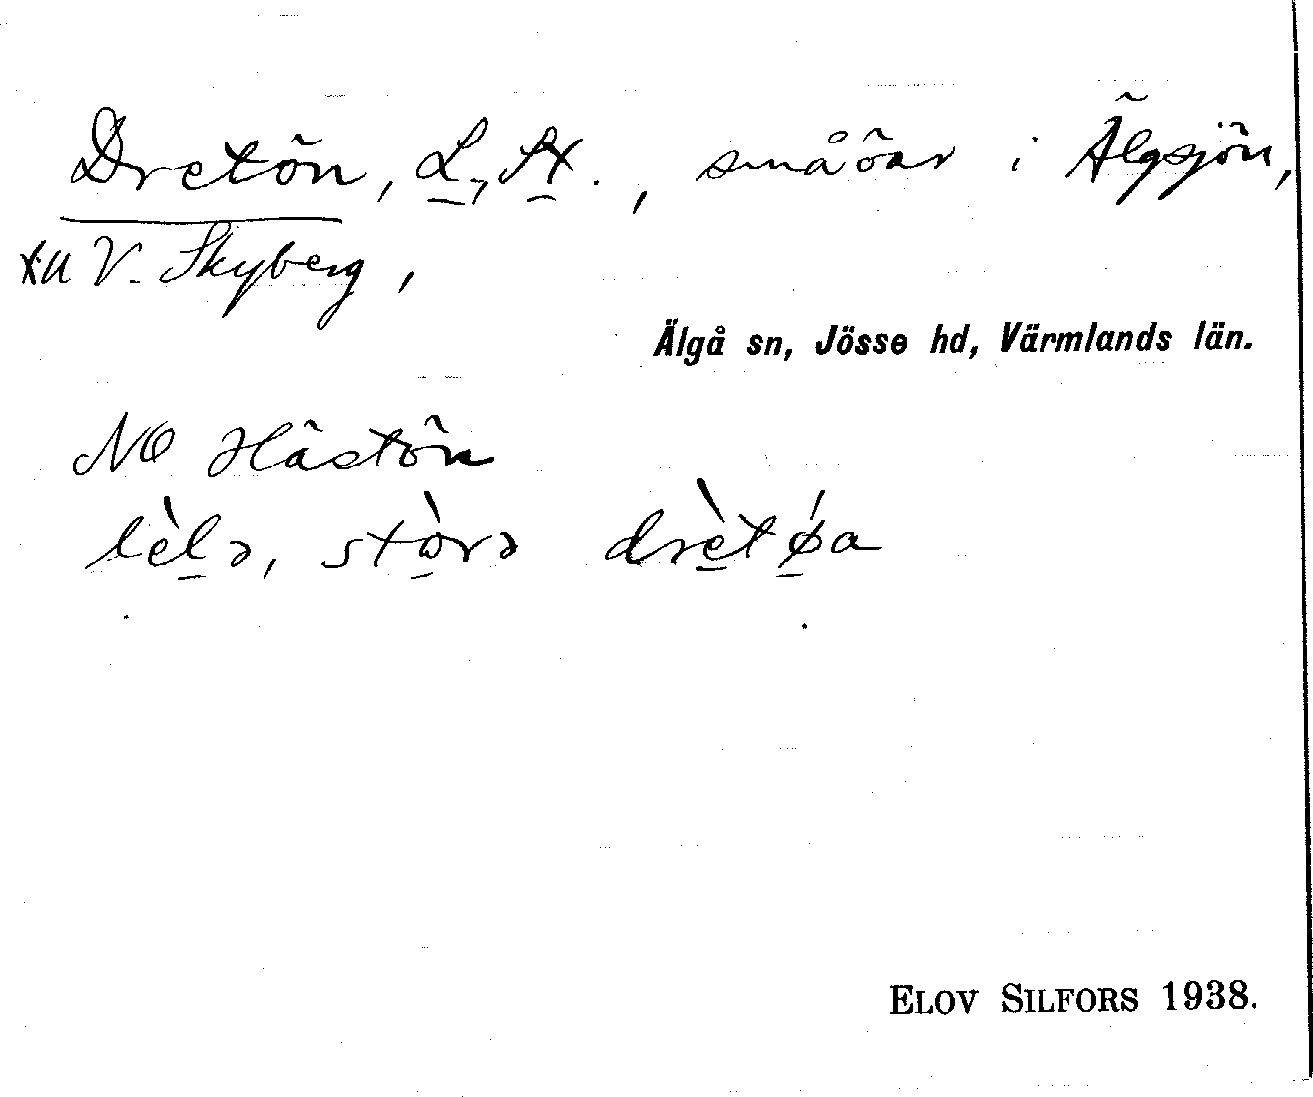 Dretön, L., St., småöar i Älgsjön,
t.u V. Skyberg,
Älgå sn, Jösse hd, Värmlands län.
NO Hästön
lèlə, stòrə drètøa
ELOV SILFORS 1938.